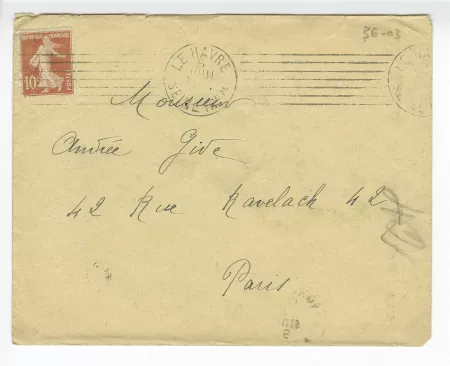 36-03
REPUBLIQUE FRANÇAISE
10c
POSTES
LE HAVRE
SEINE INFRE
Monsieur
André Gide
42 Rue Ravelach 42
Paris